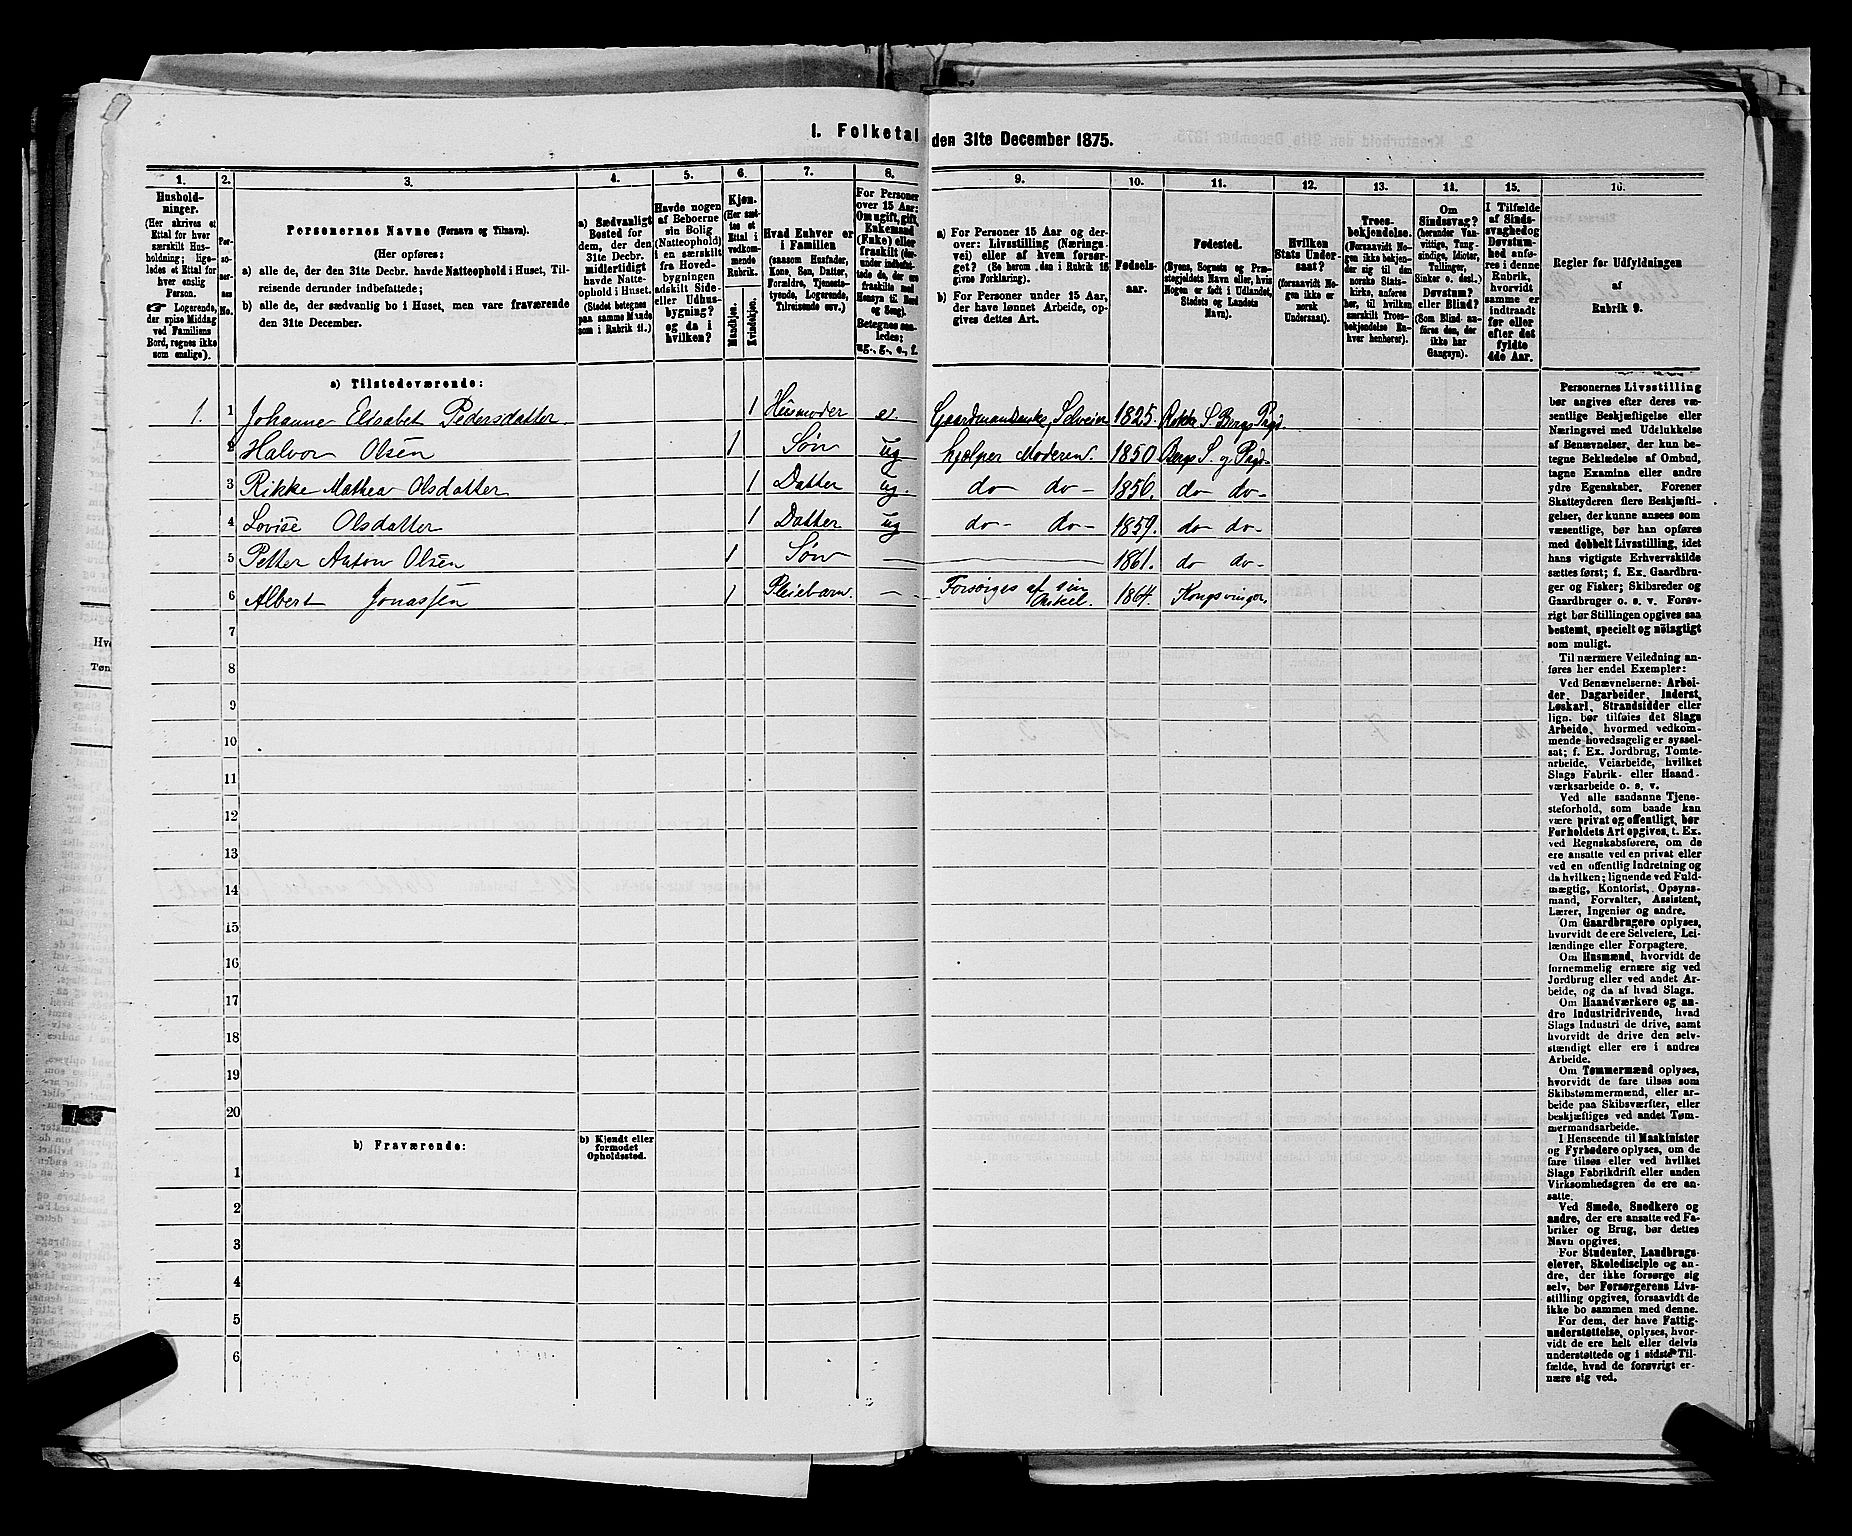 1. Folketal den 31te December 1875.
1. 2. 3. 4. 5. 6. 7. 8. 9. 10. 11. 12. 13. 14. 15. 16.
Hushold-
ninger.
(Her skrives et
Ettal for hver
særskilt Hus-
holdning; lige-
ledes et Ettal for
hver enslig
Person.
☞ Logerende,
der spise Middag
ved Familiens
Bord, regnes ikke
som enslige).
Per-
so-
ner-
nes
No.
Personernes Navne (Fornavn og Tilnavn).
(Her opføres:
a) alle de, der den 31te Decbr. havde Natteophold i Huset, Til-
reisende derunder indbefattede;
b) alle de, der sædvanlig bo i Huset, men vare fraværende
den 31te December.
a) Sædvanligt
Bosted for
dem, der den
31te Decbr.
midlertidigt
havde Natte-
ophold i Huset.
(Stedet betegnes
paa samme Maade
som i Rubrik 11.)
Havde nogen
af Beboerne
sin Bolig
(Natteophold)
i en særskilt
fra Hoved-
bygningen
adskilt Side-
eller Udhus-
bygning?
og da i
hvilken?
Kjøn.
(Her sæt-
tes et
Ettal i
vedkom-
mende
Rubrik.
Mandkjøn.
Kvindekjøn.
Hvad Enhver er
i Familien
(saasom Husfader,
Kone, Søn, Datter,
Forældre, Tjeneste-
tyende, Logerende,
Tilreisende osv.)
For Personer
over 15 Aar:
Om ugift, gift,
Enkemand
(Enke) eller
fraskilt (der-
under indbefat-
tede de, der ere
fraskilte med
Hensyn til Bord
og Seng).
Betegnes saa-
ledes:
ug., g., e., f.
a) For Personer 15 Aar og der-
over: Livsstilling (Nærings-
vei) eller af hvem forsør-
get? (Se herom den i Rubrik 16
givne Forklaring).
b) For Personer under 15 Aar,
der have lønnet Arbeide, op-
gives dettes Art.
Fødsels-
aar.
Fødested.
(Byens, Sognets og Præ-
stegjeldets Navn eller, hvis
Nogen er født i Udlandet,
Stedets og Landets
Navn).
Hvilken
Stats Under-
saat?
(forsaavidt No-
gen ikke er
norsk
Undersaat).
Troes-
bekjendelse.
(Forsaavidt No-
gen ikke bekjen-
der sig til den
norske Stats-
kirke, anføres
her, til hvilken
særskilt Troes-
bekjendelse En-
hver henhører).
Om
Sindssvag?
(herunder Van-
vittige, Tung-
sindige, Idioter,
Tullinger,
Sinker o. desl.)
Døvstum?
eller Blind?
(Som Blind an-
føres den, der
ikke har
Gangsyn).
I Tilfælde
af Sinds-
svaghed og
Døvstum-
hed anfø-
res i denne
Rubrik,
hvorvidt
samme er
indtraadt
før eller
efter det
fyldte
4de Aar.
Regler for Udfyldningen
af
Rubrik 9.
a) Tilstedeværende:
1. 1 Johanne Elisabet Pedersdatter. 1 Husmoder e. Gaardmandsenke, Selveier 1825. Rokke S. Bergs Pgd.
2 Halvor Olsen 1 Søn ug hjælper Moderen. 1850 Bergs S. og Pgd.
3 Rikke Mathea Olsdatter 1 Datter ug. do do - 1856. do do -
4 Lovise Olsdatter 1 Datter ug do - do - 1859. do do -
5 Petter Anton Olsen 1 Søn — 1861. do do -
6 Albert Jonassen 1 Pleiebarn. — Forsørges af sin Onkel. 1864. Kongsvinger.
7
8
9
10
11
12
13
14
15
16
17
18
19
20
b) Fraværende:
b) Kjendt eller
formodet
Opholdssted.
1
2
3
4
5
6
Personernes Livsstilling
bør angives efter deres væ-
sentlige Beskjæftigelse eller
Næringsvei med Udelukkelse
af Benævnelser, der kun be-
tegne Beklædelse af Ombud,
tagne Examina eller andre
ydre Egenskaber. Forener
Skatteyderen flere Beskjæfti-
gelser, der kunne ansees som
væsentlige, bør han opføres
med dobbelt Livsstilling, idet
hans vigtigste Erhvervskilde
sættes først; f. Ex. Gaardbru-
ger og Fisker; Skibsreder og
Gaardbruger o. s. v. Forøv-
rigt bør Stillingen opgives saa
bestemt, specielt og nöiagtigt
som muligt.
Til nærmere Veiledning an-
føres her endel Exempler:
Ved Benævnelserne: Arbei-
der, Dagarbeider, Inderst,
Løskarl, Strandsidder eller
lign. bør tilføies det Slags
Arbeide, hvormed vedkom-
mende hovedsagelig er syssel-
sat; f. Ex. Jordbrug, Tomte-
arbeide, Veiarbeide, hvilket
Slags Fabrik- eller Haand-
værksarbeide o. s. v.
Ved alle saadanne Tjene-
steforhold, som baade kan
være privat og offentligt, bør
Forholdets Art opgives, t. Ex.
ved Regnskabsførere, om de
ere ansatte ved en privat eller
ved en offentlig Indretning og
da hvilken; lignende ved Fuld-
mægtig, Kontorist, Opsyns-
mand, Forvalter, Assistent,
Lærer, Ingeniør og andre.
Om Gaardbrugere oplyses,
hvorvidt de ere Selveiere, Lei-
lændinge eller Forpagtere.
Om Husmænd, hvorvidt de
fornemmelig ernære sig ved
Jordbrug eller ved andet Ar-
beide, og da af hvad Slags.
Om Haandværkere og an-
dre Industridrivende, hvad
Slags Industri de drive, samt
hvorvidt de drive den selv-
stændigt eller ere i andres
Arbeide.
Om Tømmermænd oplyses,
hvorvidt de fare tilsøs som
Skibstømmermænd, eller ar-
beide paa Skibsværfter, eller
beskjæftiges ved andet Tøm-
mermandsarbeide.
I Henseende til Maskinister
og Fyrbødere oplyses, om de
fare tilsøs eller ved hvilket
Slags Fabrikdrift eller anden
Virksomhedsgren de ere an-
satte.
Ved Smede, Snedkere og
andre, der ere ansatte ved Fa-
briker og Brug, bør dettes
Navn opgives.
For Studenter, Landbrugs-
elever, Skoledisciple og an-
dre, der ikke forsørge sig
selv, bør Forsørgerens Livs-
stilling opgives, forsaavidt de
ikke bo sammen med denne.
For dem, der have Fattig-
understøttelse, oplyses, hvor-
vidt de ere helt eller delvis
understøttede og i sidste Til-
fælde, hvad de forøvrigt er-
nære sig ved.